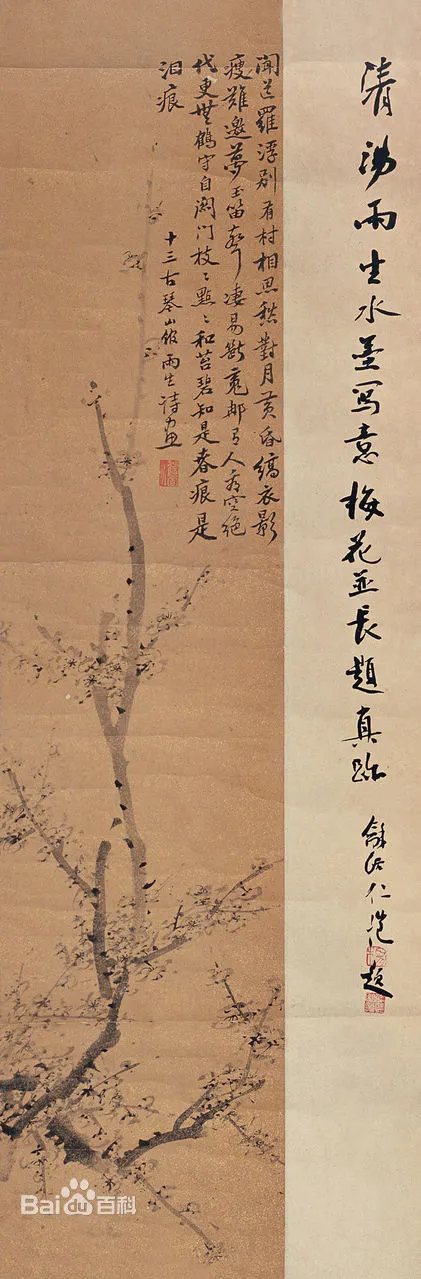 清湯雨生水墨写意梅花並長題真跡
龢溪仁愷題
聞道羅浮別有村相思愁對月黃昏縞衣影
瘦難邀夢玉笛聲凄易斷魂那有人看空絕
代更無鶴守自關門枝〻點〻和苔碧知是春痕是
泪痕
十三古琴山館雨生詩畫
Bai百科